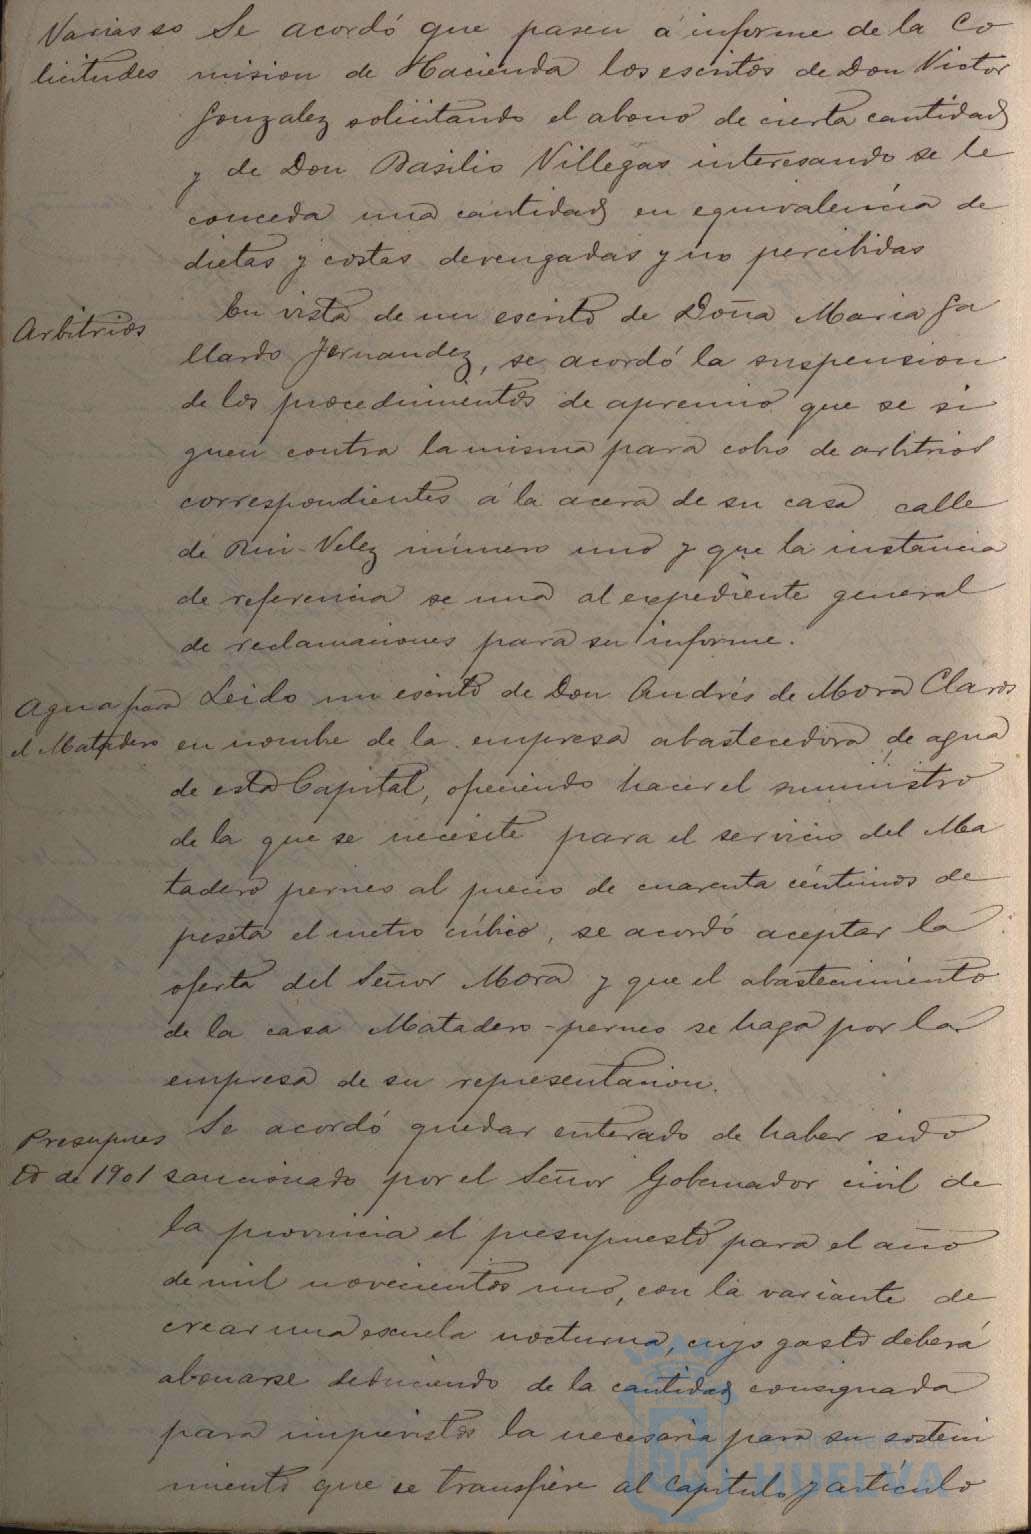 Varias so
licitudes
Se acordó que pasen á informe de la Co
mision de Hacienda los escritos de Don Victor
Gonzalez solicitando el abono de cierta cantidad
y de Don Basilio Villegas interesando se le
conceda una cantidad en equivalencia de
dietas y costas devengadas y no percibidas
Arbitrios
En vista de un escrito de Doña Maria Ga
llardo Fernandez, se acordó la suspension
de los procedimientos de apremio que se si
guen contra la misma para cobro de arbitrios
correspondientes á la acera de su casa calle
de Rui-Velez número uno y que la instancia
de referencia se una al expediente general
de reclamaciones para su informe.
Agua para
el Matadero
Leido un escrito de Don Andrés de Mora Claros
en nombre de la empresa abastecedora de agua
de esta Capital, ofreciendo hacer el suministro
de la que se necesite para el servicio del Ma
tadero pernes al precio de cuarenta céntimos de
peseta el metro cúbico, se acordó aceptar la
oferta del Señor Mora y que el abastecimiento
de la casa Matadero-pernes se haga por la
empresa de su representacion.
Presupues
to de 1901
Se acordó quedar enterado de haber sido
sancionado por el Señor Gobernador civil de
la provincia el presupuesto para el año
de mil novecientos uno, con la variante de
crear una escuela nocturna, cuyo gasto deberá
abonarse deduciendo de la cantidad consignada
para imprevistos la necesaria para su sosteni
miento que se transfiere al capitulo y artículo
Ayuntamiento de
HUELVA